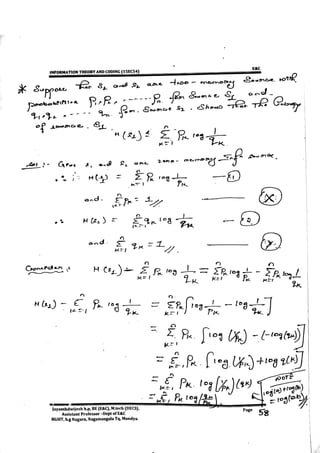 INFORMATION THEORY AND CODING (15EC54) E&C
* Suppose S₁ and S₂ are two - memory Source with
probabilities P₁, P₂, - - - - - P for Source S₁ and
q₁, q₂ - - - - for Source S₂. Show that The Entropy
of source S₁
H(S₁) ≤ Σ Pₖ log 1/qₖ
k=1
Sol: - Given S₁ and S₂ are zero - memory source.
∴ H(S₁) = Σ Pₖ log 1/Pₖ — ①
and Σ Pₖ = 1 — (X)
∴ H(S₂) = Σ qₖ log 1/qₖ — ②
and Σ qₖ = 1 — (Y)
Consider, H(S₁) - Σ Pₖ log 1/qₖ = Σ Pₖ log 1/Pₖ - Σ Pₖ log 1/qₖ
H(S₁) - Σ Pₖ log 1/qₖ = Σ Pₖ [log 1/Pₖ - log 1/qₖ]
= Σ Pₖ [log (1/Pₖ) - (-log(qₖ))]
= Σ Pₖ [log (1/Pₖ) + log q(k)]
= Σ Pₖ log (1/Pₖ)(qₖ)
NOTE
log(a)+log(b)
= log(ab)
= Σ Pₖ log
Jayanthdwijesh h.p, BE (E&C), M.tech (DECS).
Assistant Professor -Dept of E&C
BGSIT, b.g Nagara, Nagamangala Tq, Mandya.
Page 58